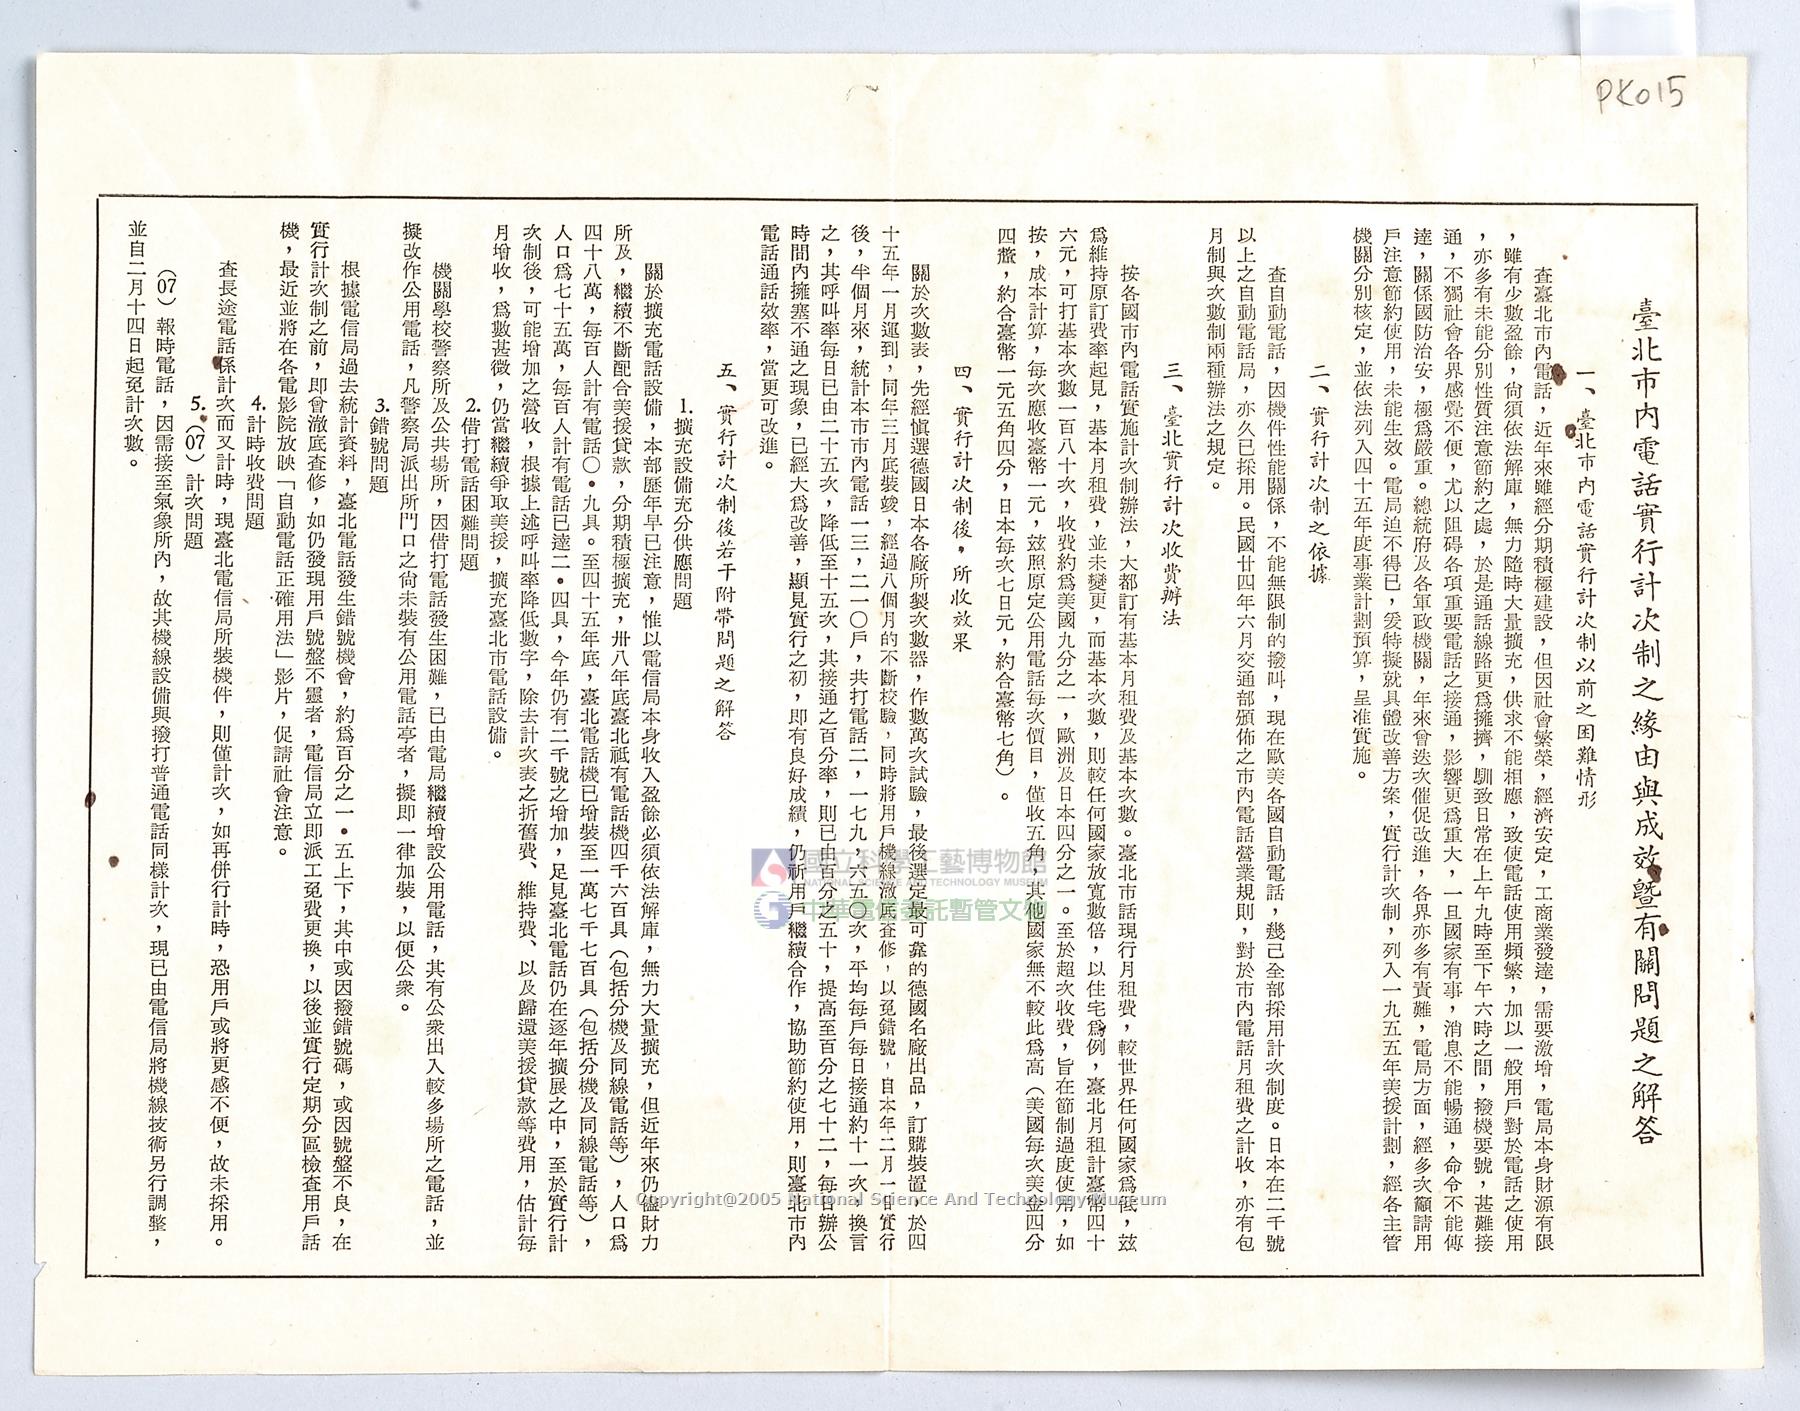 PK015
臺北市內電話實行計次制之緣由與成效曁有關問題之解答
一、臺北市內電話實行計次制以前之困難情形
查臺北市內電話，近年來雖經分期積極建設，但因社會繁榮，經濟安定，工商業發達，需要激增，電局本身財源有限
，雖有少數盈餘，尙須依法解庫，無力隨時大量擴充，供求不能相應，致使電話使用頻繁，加以一般用戶對於電話之使用
，亦多有未能分別性質注意節約之處，於是通話線路更爲擁擠，馴致日常在上午九時至下午六時之間，撥機要號，甚難接
通，不獨社會各界感覺不便，尤以阻碍各項重要電話之接通，影響更爲重大，一旦國家有事，消息不能暢通，命令不能傳
達，關係國防治安，極爲嚴重。總統府及各軍政機關，年來曾迭次催促改進，各界亦多有責難，電局方面，經多次籲請用
戶注意節約使用，未能生效。電局迫不得已，爰特擬就具體改善方案，實行計次制，列入一九五五年美援計劃，經各主管
機關分別核定，並依法列入四十五年度事業計劃預算，呈准實施。
二、實行計次制之依據
查自動電話，因機件性能關係，不能無限制的撥叫，現在歐美各國自動電話，幾已全部採用計次制度。日本在二千號
以上之自動電話局，亦久已採用。民國廿四年六月交通部頒佈之市內電話營業規則，對於市內電話月租費之計收，亦有包
月制與次數制兩種辦法之規定。
三、臺北實行計次收費辦法
按各國市內電話實施計次制辦法，大都訂有基本月租費及基本次數。臺北市話現行月租費，較世界任何國家爲低，玆
爲維持原訂費率起見，基本月租費，並未變更，而基本次數，則較任何國家放寬數倍，以住宅爲例，臺北月租計臺幣四十
六元，可打基本次數一百八十次，收費約爲美國九分之一，歐洲及日本四分之一。至於超次收費，旨在節制過度使用，如
按，成本計算，每次應收臺幣一元，玆照原定公用電話每次價目，僅收五角，其他國家無不較此爲高（美國每次美金四分
四釐，約合臺幣一元五角四分，日本每次七日元，約合臺幣七角）。
四、實行計次制後，所收效果
關於次數表，先經慎選德國日本各廠所製次數器，作數萬次試驗，最後選定最可靠的德國名廠出品，訂購裝置，於四
十五年一月運到，同年三月底裝竣，經過八個月的不斷校驗，同時將用戶機線澈底查修，以免錯號，自本年二月一日實行
後，半個月來，統計本市市內電話一三，二一〇戶，共打電話二，一七九，六五〇次，平均每戶每日接通約十一次，換言
之，其呼叫率每日已由二十五次，降低至十五次，其接通之百分率，則已由百分之五十，提高至百分之七十二，每日辦公
時間內擁塞不通之現象，已經大爲改善，顯見實行之初，即有良好成績，仍祈用戶繼續合作，協助節約使用，則臺北市內
電話通話效率，當更可改進。
五、實行計次制後若干附帶問題之解答
1.擴充設備充分供應問題
關於擴充電話設備，本部歷年早已注意，惟以電信局本身收入盈餘必須依法解庫，無力大量擴充，但近年來仍儘財力
所及，繼續不斷配合美援貸款，分期積極擴充，卅八年底臺北祇有電話機四千六百具（包括分機及同線電話等），人口爲
四十八萬，每百人計有電話〇・九具。至四十五年底，臺北電話機已增裝至一萬七千七百具（包括分機及同線電話等），
人口爲七十五萬，每百人計有電話已達二・四具，今年仍有二千號之增加，足見臺北電話仍在逐年擴展之中，至於實行計
次制後，可能增加之營收，根據上述呼叫率降低數字，除去計次表之折舊費、維持費、以及歸還美援貸款等費用，估計每
月增收，爲數甚微，仍當繼續爭取美援，擴充臺北市電話設備。
2.借打電話困難問題
機關學校警察所及公共場所，因借打電話發生困難，已由電局繼續增設公用電話，其有公衆出入較多場所之電話，並
擬改作公用電話，凡警察局派出所門口之尙未裝有公用電話亭者，擬即一律加裝，以便公衆。
3.錯號問題
根據電信局過去統計資料，臺北電話發生錯號機會，約爲百分之一・五上下，其中或因撥錯號碼，或因號盤不良，在
實行計次制之前，即曾澈底查修，如仍發現用戶號盤不靈者，電信局立即派工免費更換，以後並實行定期分區檢查用戶話
機，最近並將在各電影院放映「自動電話正確用法」影片，促請社會注意。
4.計時收費問題
查長途電話係計次而又計時，現臺北電信局所裝機件，則僅計次，如再併行計時，恐用戶或將更感不便，故未採用。
5.（07）計次問題
（07）報時電話，因需接至氣象所內，故其機線設備與撥打普通電話同樣計次，現已由電信局將機線技術另行調整，
並自二月十四日起免計次數。
國立科學工藝博物館
NATIONAL SCIENCE AND TECHNOLOGY MUSEUM
中華電信委託暫管文物
Copyright@2005 National Science And Technology Museum